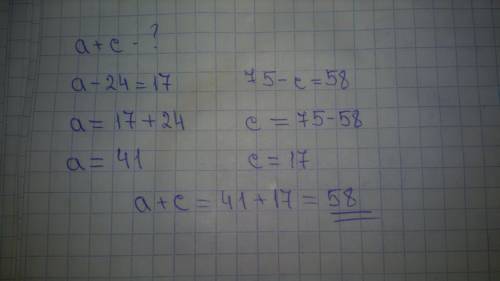 a+c-?
a-24=17 75-c=58
a=17+24 c=75-58
a=41 c=17
a+c=41+17=58